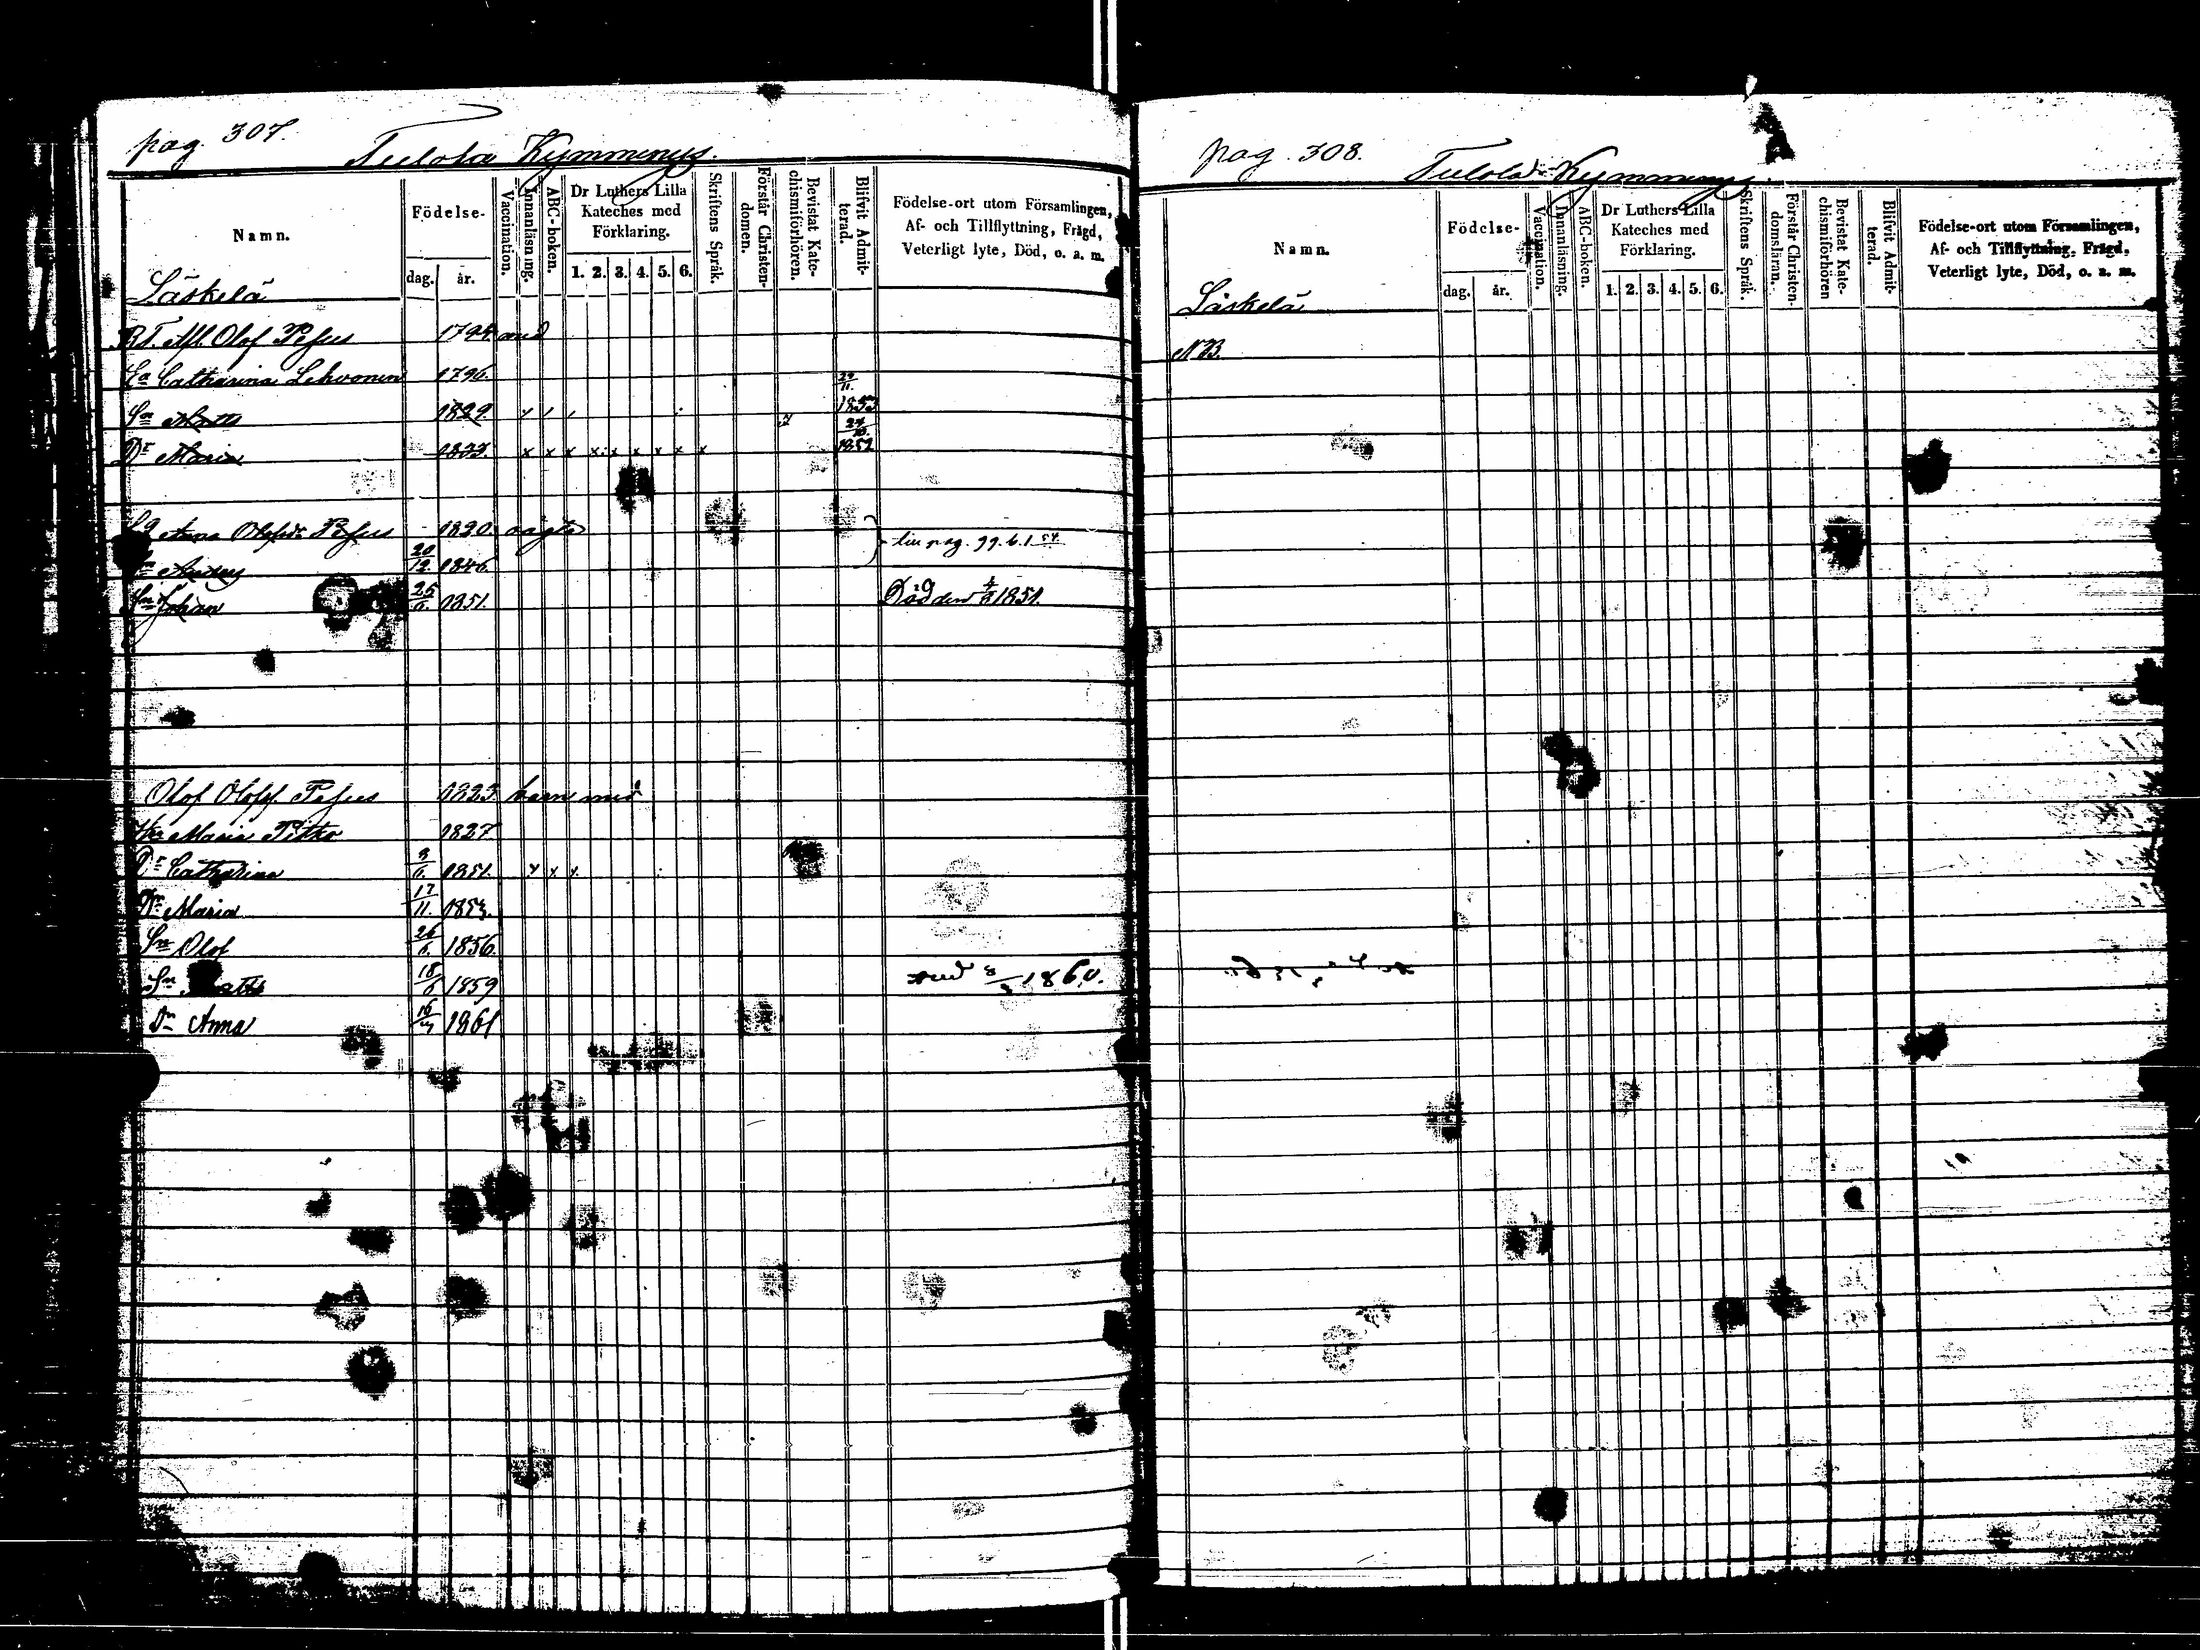 pag. 307.
Tulola Kymmenys.
Namn.
Födelse-
dag. år.
Vaccination.
Innanläsning.
ABC-boken.
Dr Luthers Lilla
Kateches med
Förklaring.
1. 2. 3. 4. 5. 6.
Skriftens Språk.
Förstår Christen-
domen.
Bevistat Kate-
chismiförhören.
Blifvit Admit-
terad.
Födelse-ort utom Församlingen,
Af- och Tillflyttning, Frägd,
Veterligt lyte, Död, o. a. m.
Läskelä
Olof Pesus 1794
Catharina Lehvonen 1796.
Sn Matts 1829. 1853
Dr Maria 1833. 1852
Anna Olofsdr Pesus 1820.
Anders 20/12 1846.
Sn Johan 25/6 1851. Död den 4/8 1851.
Olof Olofss. Pesus 1823
Maria Pitko 1827
Dr Catharina 3/6. 1851.
Dr Maria 17/11. 1853.
Sn Olof 26/6. 1856.
Sn Matts 18/6 1859 1860.
Dr Anna 16/7 1861
pag. 308.
Tulola Kymmenys.
Namn.
Födelse-
dag. år.
Vaccination.
Innanläsning.
ABC-boken.
Dr Luthers Lilla
Kateches med
Förklaring.
1. 2. 3. 4. 5. 6.
Skriftens Språk.
Förstår Christen-
domsläran.
Bevistat Kate-
chismiförhören
Blifvit Admit-
terad.
Födelse-ort utom Församlingen,
Af- och Tillflyttning, Frägd,
Veterligt lyte, Död, o. a. m.
Läskelä
NB.